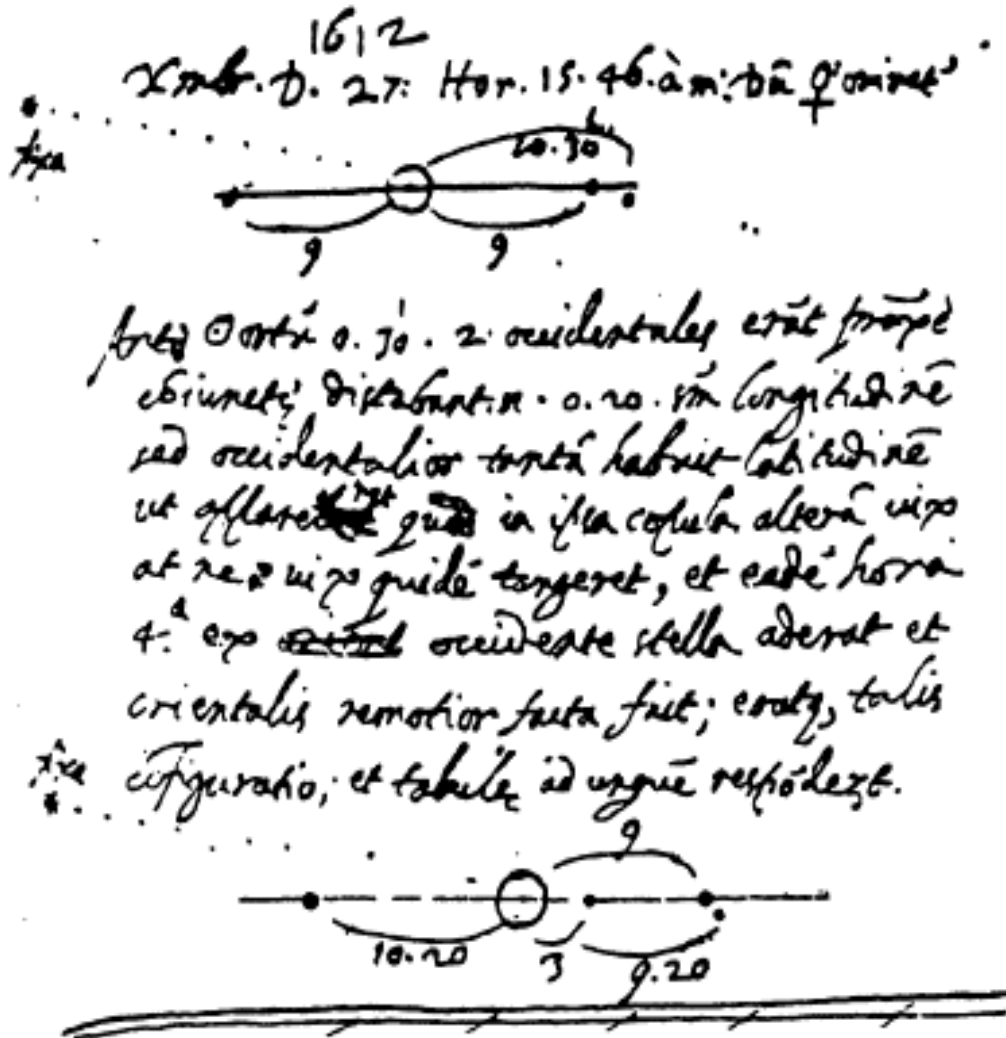 1612
Xmbr. D. 27. Hor. 15. 46. à m: Dũ ♀ oriret'
fixa
10.30
9 9
0. 30. 2 occidentales erãt
distabant. n. 0.20. longitudinẽ
sed occidentalior tantã habuit latitudinẽ
ut in ipsa alterã vix
at vix quidẽ tangeret, et eadẽ hora
4.ᵃ ex occidente stella aderat et
orientalis remotior facta fuit; eratq, talis
cõfiguratio; et tabulę ad unguẽ respõdẽt.
fixa
9
10.20 3 0.20